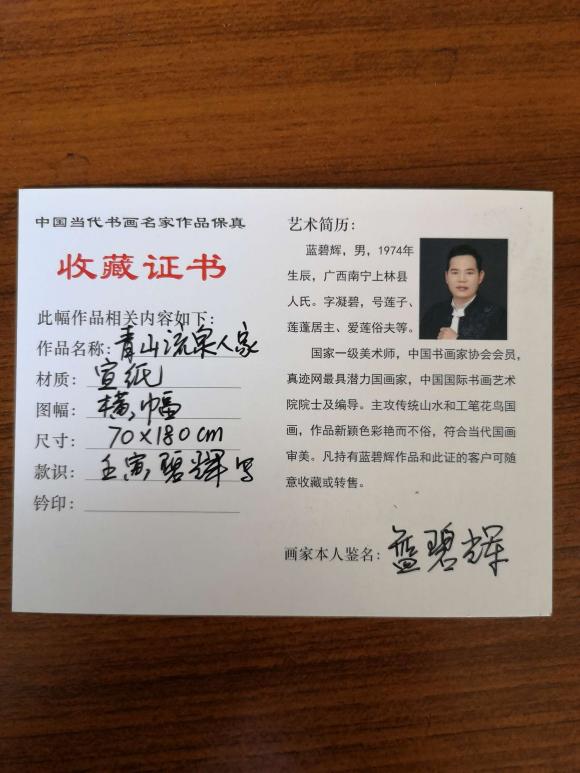 中国当代书画名家作品保真
收藏证书
此幅作品相关内容如下:
作品名称: 青山流泉人家
材质: 宣纸
图幅: 横幅
尺寸: 70×180cm
款识: 壬寅碧辉写
钤印:
艺术简历:
蓝碧辉,男,1974年
生辰,广西南宁上林县
人氏。字凝碧,号莲子、
莲蓬居主、爱莲俗夫等。
国家一级美术师,中国书画家协会会员,
真迹网最具潜力国画家,中国国际书画艺术
院院士及编导。主攻传统山水和工笔花鸟国
画,作品新颖色彩艳而不俗,符合当代国画
审美。凡持有蓝碧辉作品和此证的客户可随
意收藏或转售。
画家本人鉴名: 蓝碧辉